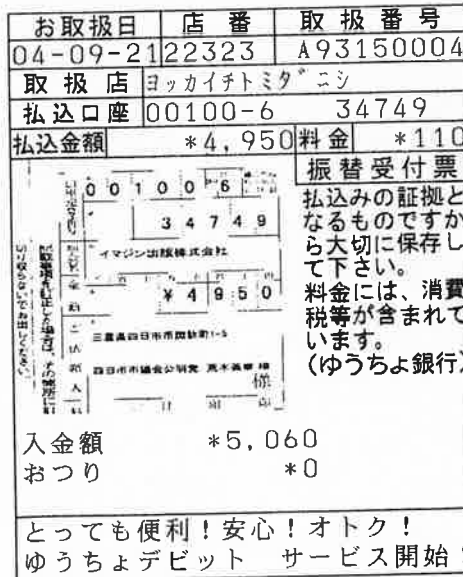 お取扱日 店番 取扱番号
04-09-21 22323 A93150004
取扱店 ヨッカイチトミダニシ
払込口座 00100-6 34749
払込金額 *4,950 料金 *110
振替受付票
払込みの証拠と
なるものですか
ら大切に保存し
て下さい。
料金には、消費
税等が含まれて
います。
(ゆうちょ銀行)
00100 6
34749
イマジン出版株式会社
¥4950
四日市市議会公明党 荒木美幸 様
様
切り取らないでお出しください。
入金額 *5,060
おつり *0
とっても便利!安心!オトク!
ゆうちょデビット サービス開始!